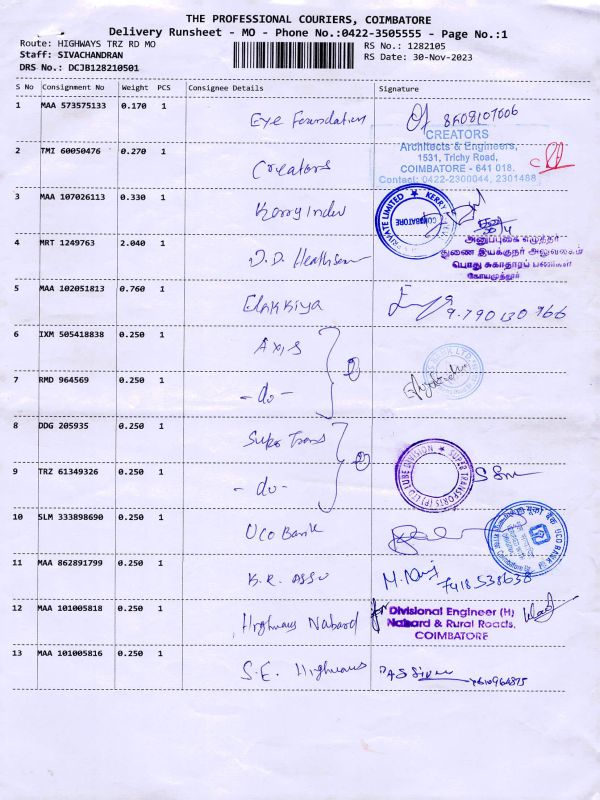 THE PROFESSIONAL COURIERS, COIMBATORE
Delivery Runsheet - MO - Phone No.:0422-3505555 - Page No.:1
Route: HIGHWAYS TRZ RD MO
Staff: SIVACHANDRAN
DRS No.: DCJB128210501
RS No.: 1282105
RS Date: 30-Nov-2023
S No Consignment No Weight PCS Consignee Details Signature
1 MAA 573575133 0.170 1 Eye Foundation
2 TMI 60050476 0.270 1 Creators
CREATORS
Architects & Engineers,
1531, Trichy Road,
COIMBATORE - 641 018.
Contact: 0422-2300044, 2301488
3 MAA 107026113 0.330 1 Kerry Indev
PRIVATE LIMITED ★ KERRY
COIMBATORE
4 MRT 1249763 2.040 1 D.D.
அனுப்புகை எழுத்தர்
துணை இயக்குநர் அலுவலகம்
பொது சுகாதாரப் பணிகள்
கோயமுத்தூர்
5 MAA 102051813 0.760 1 Elakkiya
9.790130766
6 IXM 505418838 0.250 1 Axis
7 RMD 964569 0.250 1 - do -
2
8 DDG 205935 0.250 1 Super Trans
9 TRZ 61349326 0.250 1 - do -
2
SUPER TRANSPORTS (P) LTD
LUBE DIVISION
10 SLM 333898690 0.250 1 UCO Bank
UCO BANK
11 MAA 862891799 0.250 1 K.R. Asso
7418538638
12 MAA 101005818 0.250 1 Highways Nabard
for Divisional Engineer (H)
Nabard & Rural Roads,
COIMBATORE
13 MAA 101005816 0.250 1 S.E. Highways